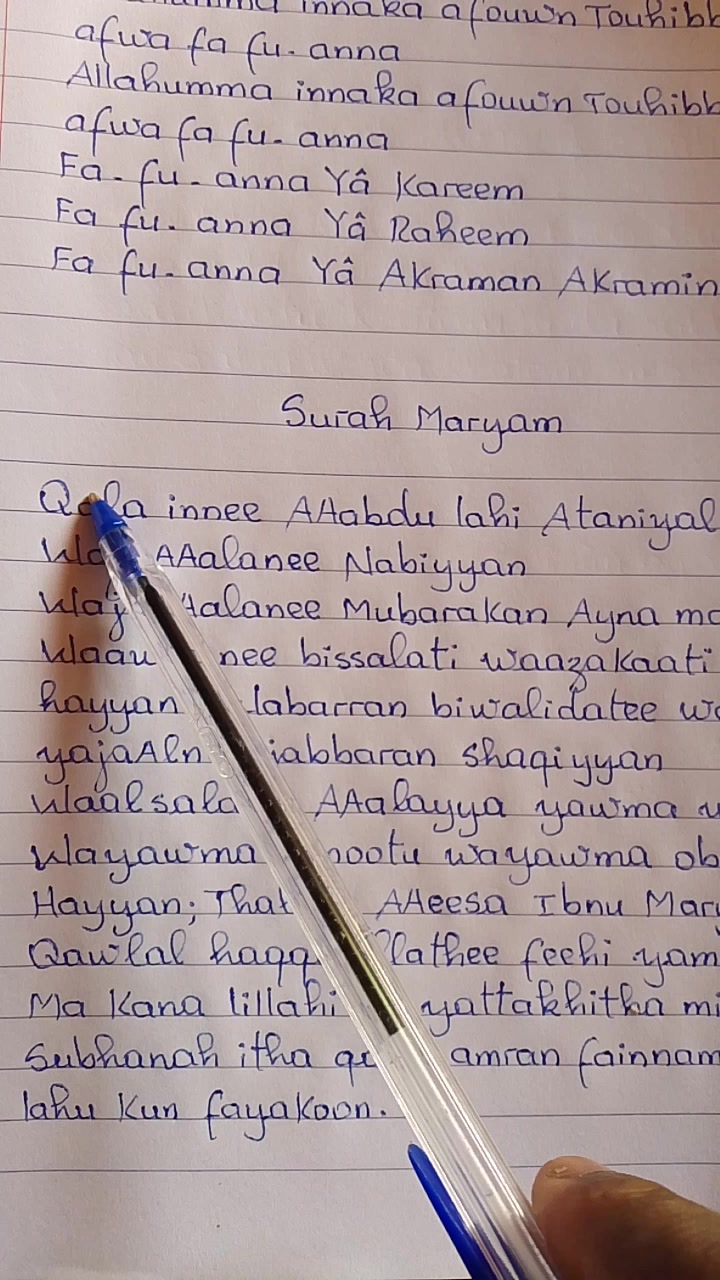 innaka afouwn Touhibb
afwa fa fu. anna
Allahumma innaka afouwn Touhibb
afwa fa fu. anna
Fa. fu. anna Yâ Kareem
Fa fu. anna Yâ Raheem
Fa fu. anna Yâ Akraman Akramin
Surah Maryam
Qala innee AAabdu lahi Ataniyal
AAalanee Nabiyyan
Waj Aalanee Mubarakan Ayna ma
Waau nee bissalati waazakaati
hayyan labarran biwalidatee wa
yajaAln jabbaran shaqiyyan
Waalsala AAalayya yawma
Wayawma mootu wayawma ob
Hayyan; That AAeesa Ibnu Mary
Qawlal haqq llathee feehi yam
Ma Kana lillahi yattakhitha mi
Subhanah itha qa amran fainnam
lahu Kun fayakoon.